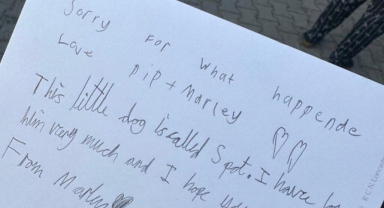 Sorry For What happende
Love pip + Marley
This little dog is called Spot. I have
him very much and I hope
From Marley